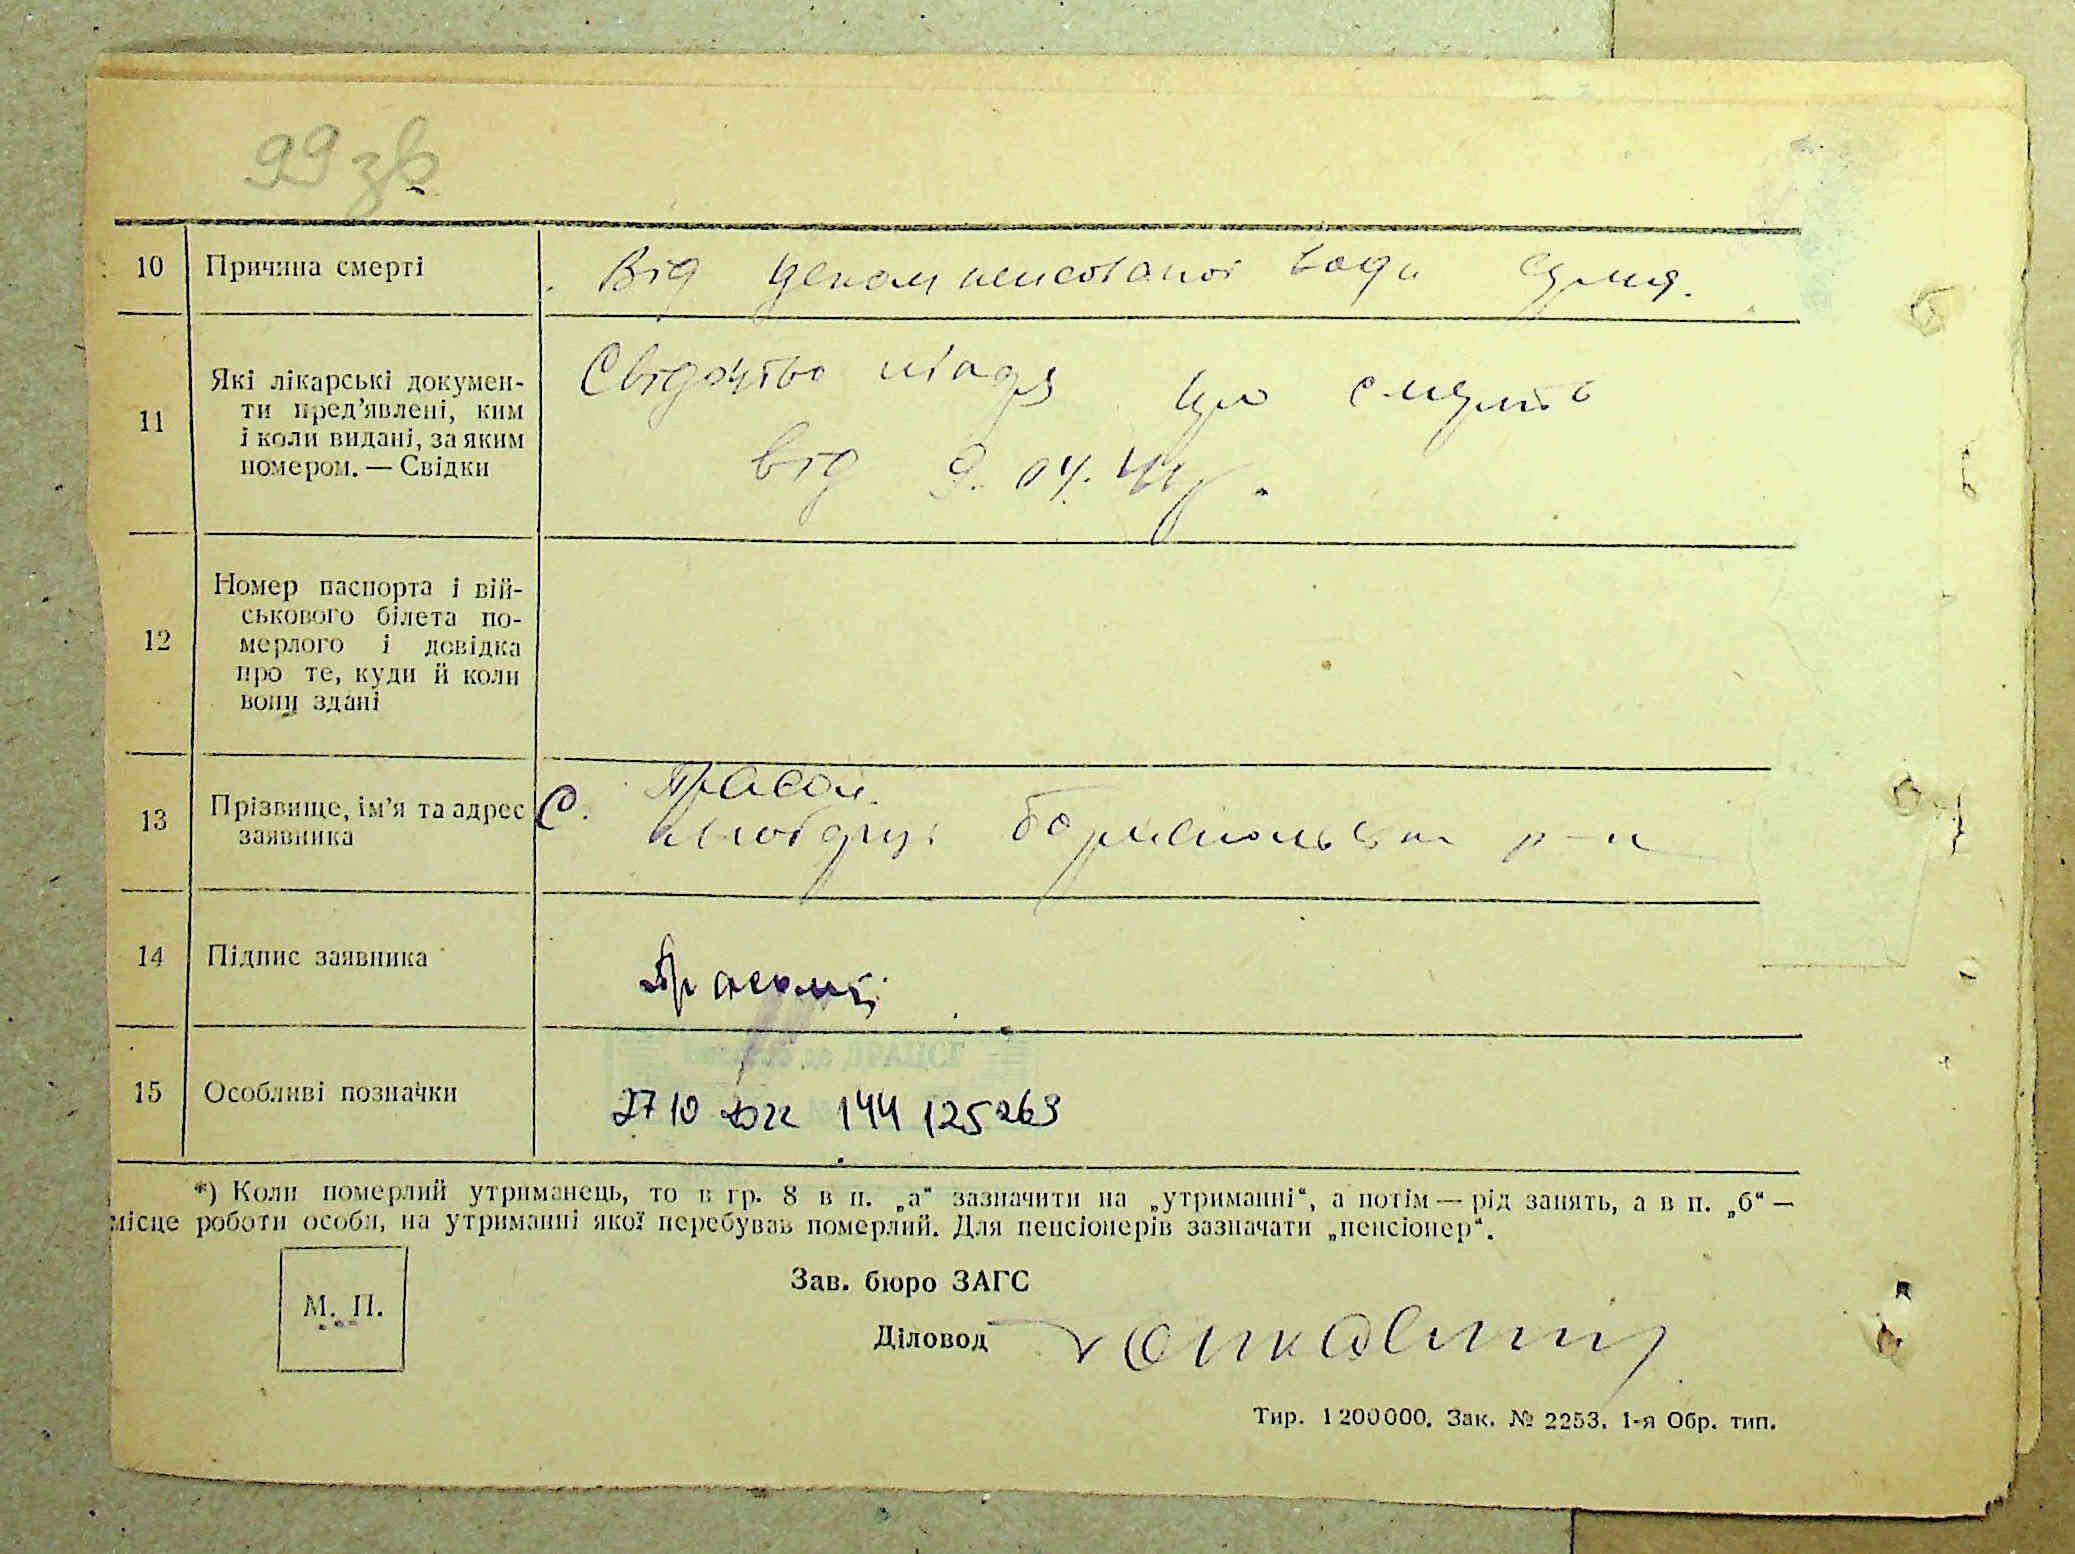 99 зв
10 Причина смерті Від декомпенсованої вади серця.
11 Які лікарські докумен-
ти пред’явлені, ким
і коли видані, за яким
номером. — Свідки
Свідоцтво про смерть
від 9. 04. 41 р.
12 Номер паспорта і вій-
ськового білета по-
мерлого і довідка
про те, куди й коли
вони здані
13 Прізвище, ім’я та адрес
заявника
с. Бориспольськ р-н
14 Підпис заявника
15 Особливі позначки
2710 144 125269
*) Коли померлий утриманець, то в гр. 8 в п. „а“ зазначити на „утриманні“, а потім — рід занять, а в п. „б“ —
місце роботи особи, на утриманні якої перебував померлий. Для пенсіонерів зазначати „пенсіонер“.
М. П.
Зав. бюро ЗАГС
Діловод
Тир. 1 200 000. Зак. № 2253. 1-я Обр. тип.